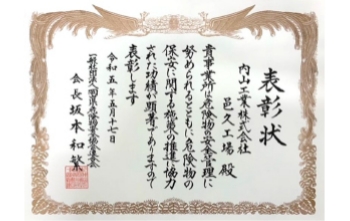 表彰状
内山工業株式会社
邑久工場 殿
貴事業所は危険物の安全管理に
努められるとともに危険物の
保安に関する施策の推進に協力
された功績が顕著でありますので
表彰します
令和五年五月十七日
一般社団法人岡山県危険物安全協会連合会
会長 坂本和繁